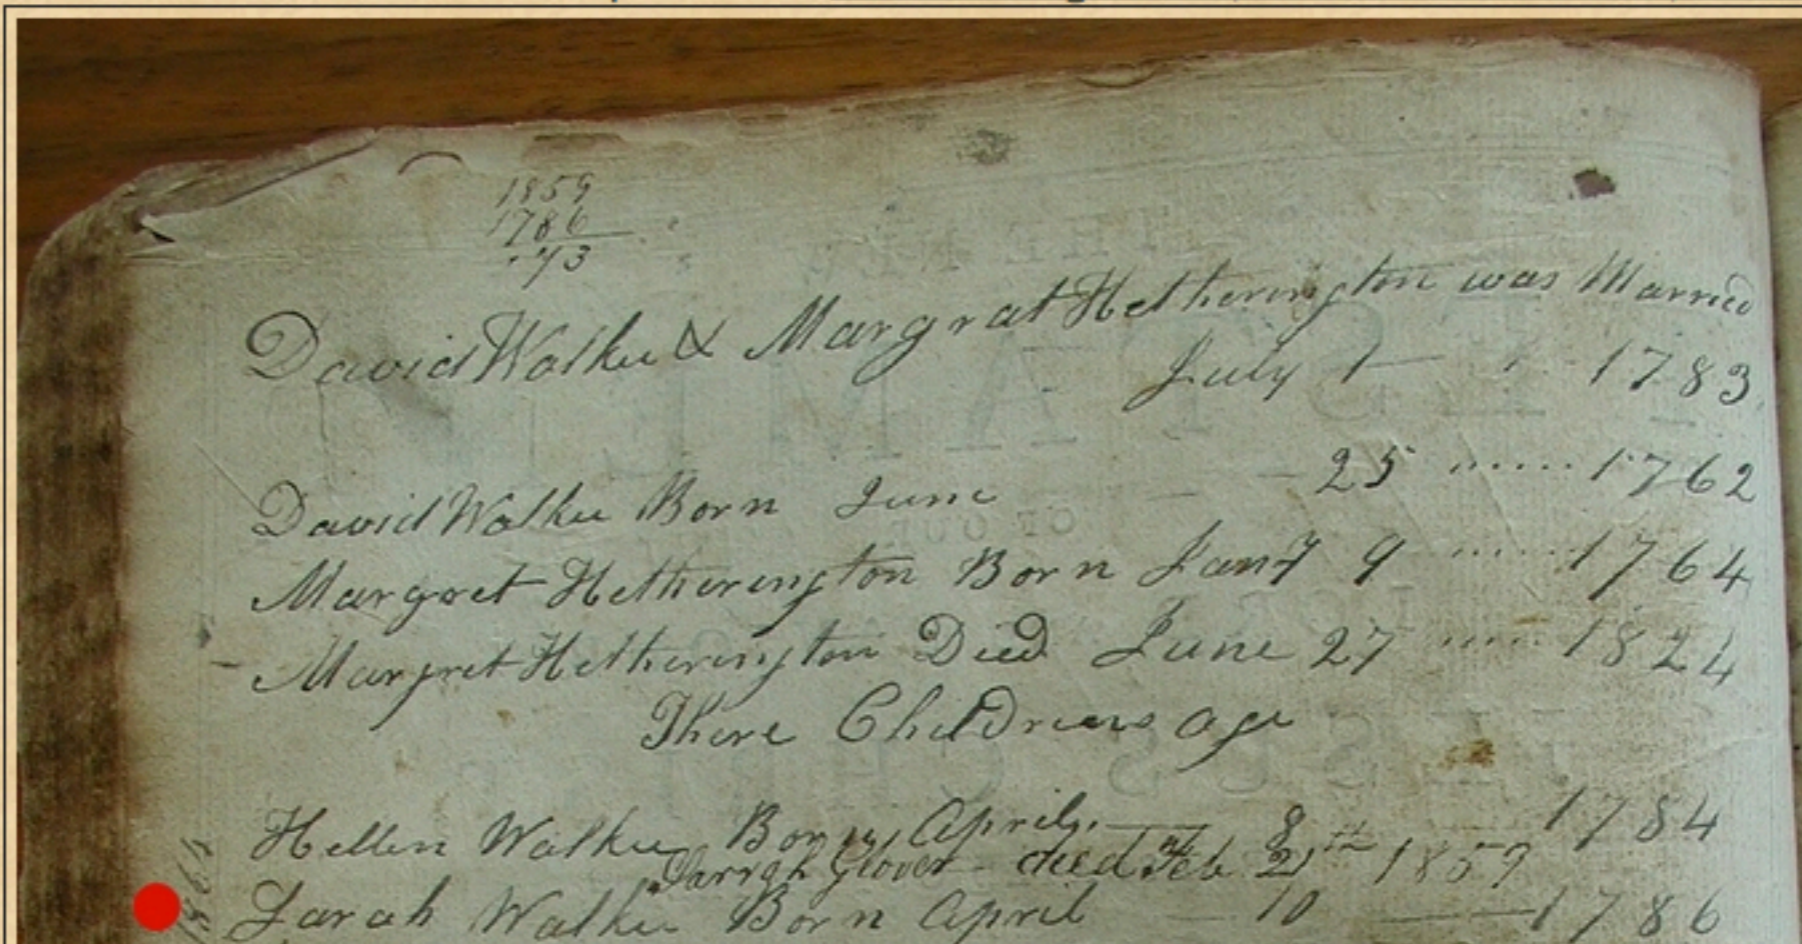 1859
1786
73
David Walker & Margrat Hetherington was Married
July 1 1783
David Walker Born June 25 1762
Margret Hetherington Born Jany 9 1764
Margret Hetherington Died June 27 1824
There Childrens age
Hellen Walker Born April 8 1784
Sarrah Glover died Feb 21th 1859
Sarah Walker Born April 10 1786